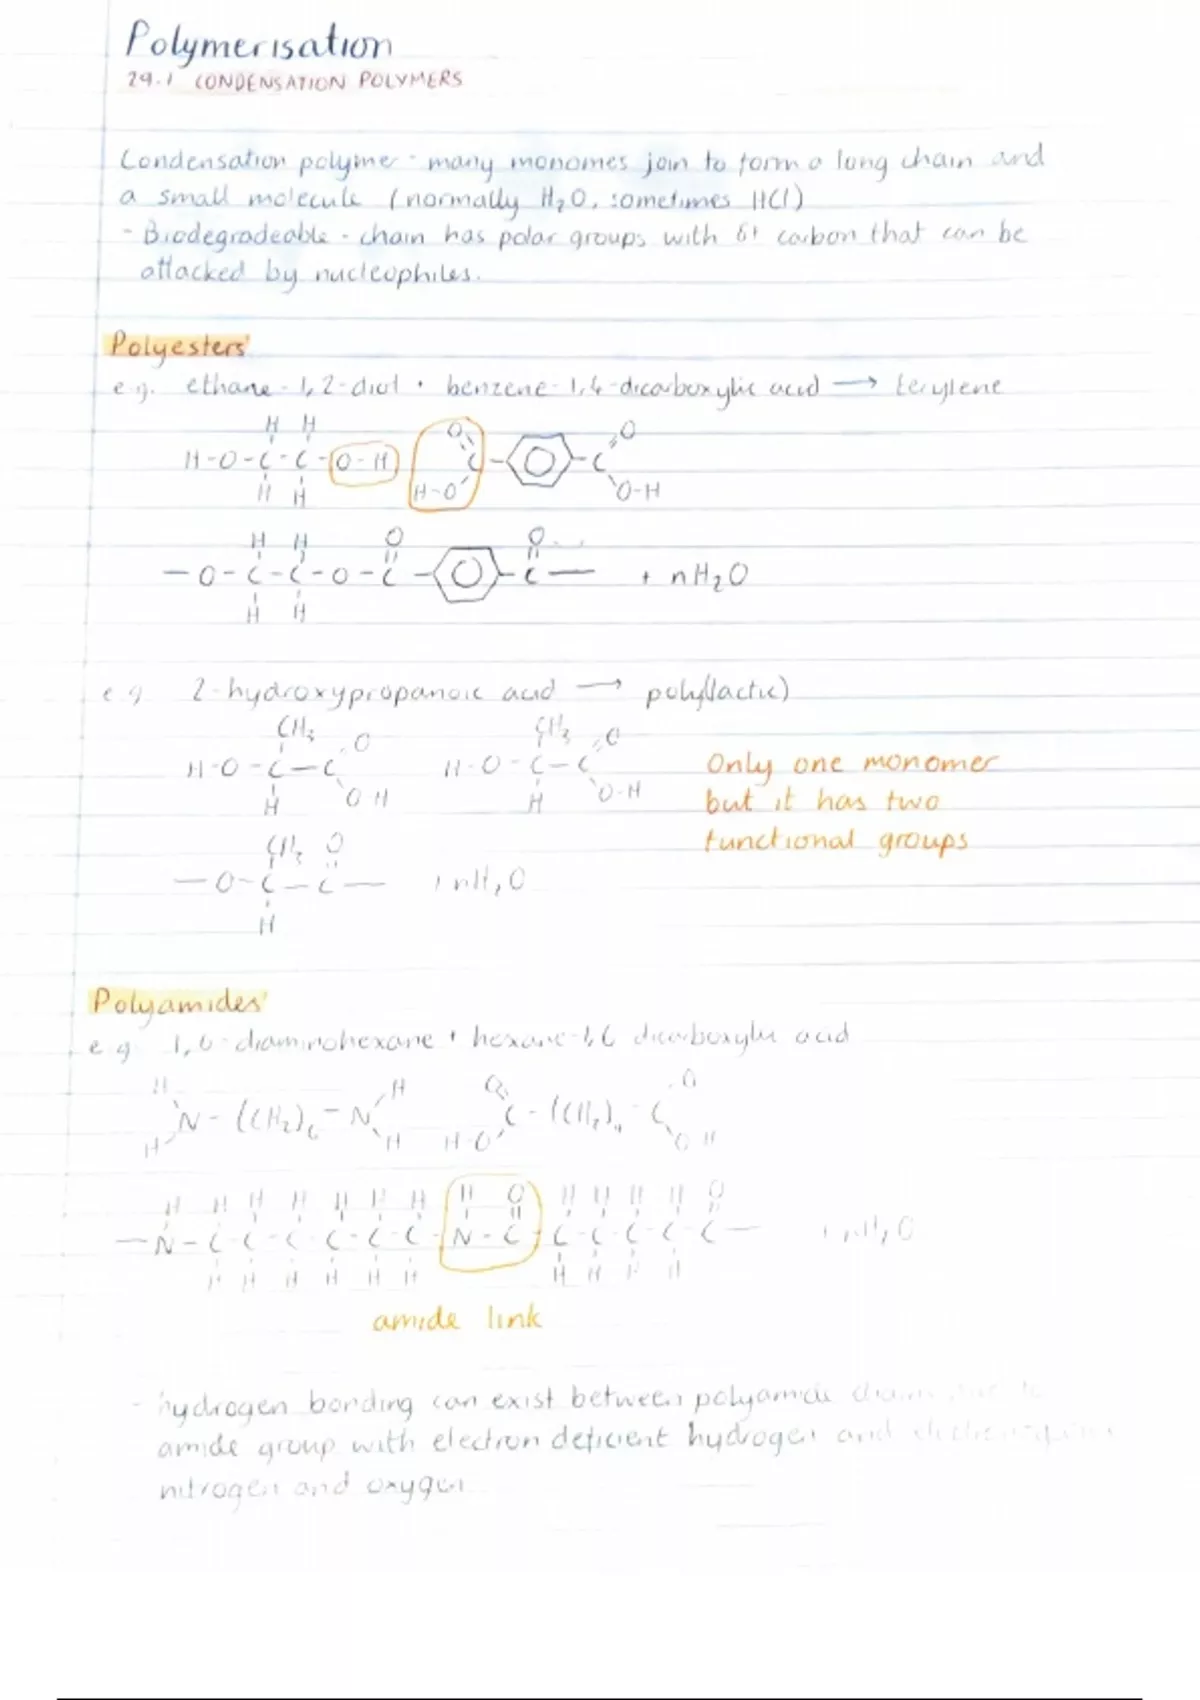 Polymerisation
29.1 CONDENSATION POLYMERS
Condensation polymer - many monomes join to form a long chain and
a small molecule (normally H₂O, sometimes HCl)
- Biodegradeable - chain has polar groups with δ+ carbon that can be
attacked by nucleophiles.
Polyesters
e.g. ethane-1,2-diol + benzene-1,4-dicarboxylic acid → terylene
H H
H-O-C-C-O-H O C C O
H H H-O O-H
H H O O
-O-C-C-O-C C- + nH₂O
H H
e.g. 2-hydroxypropanoic acid → poly(lactic)
CH₃ O CH₃ O
H-O-C-C H-O-C-C
H OH H O-H
Only one monomer
but it has two
functional groups
CH₃ O
-O-C-C- + nH₂O
H
Polyamides
e.g. 1,6-diaminohexane + hexane-1,6 dicarboxylic acid
H H O O
N-(CH₂)₆-N C-(CH₂)₄-C
H H H-O OH
H H H H H H H H O H H H H O
-N-C-C-C-C-C-C-N-C-C-C-C-C-C- + nH₂O
H H H H H H H H H H
amide link
- hydrogen bonding can exist between polyamide chains due to
amide group with electron deficient hydrogen and
nitrogen and oxygen